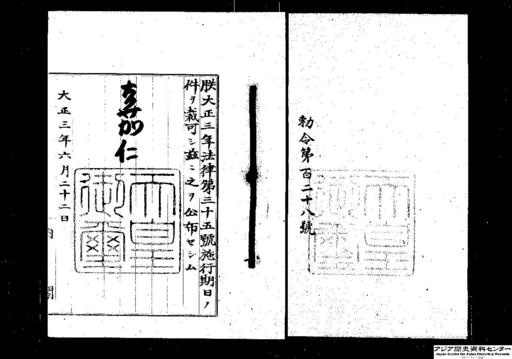 勅令第百二十八號
朕大正三年法律第三十五號施行期日ノ
件ヲ裁可シ玆ニ之ヲ公布セシム
嘉仁
天皇
御璽
大正三年六月二十二日
内閣
アジア歴史資料センター
Japan Center for Asian Historical Records